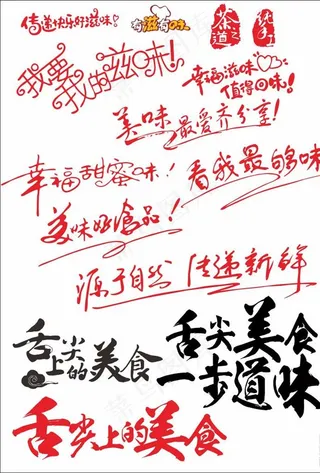 传递快乐好滋味!
有滋有味
茶之道
纯手工
我要我的滋味!
幸福滋味
值得回味!
美味最爱齐分享!
幸福甜蜜味!
看我最够味
美味好食品!
源于自然 传递新鲜
舌尖上的美食
舌尖美食
一步道味
舌尖上的美食